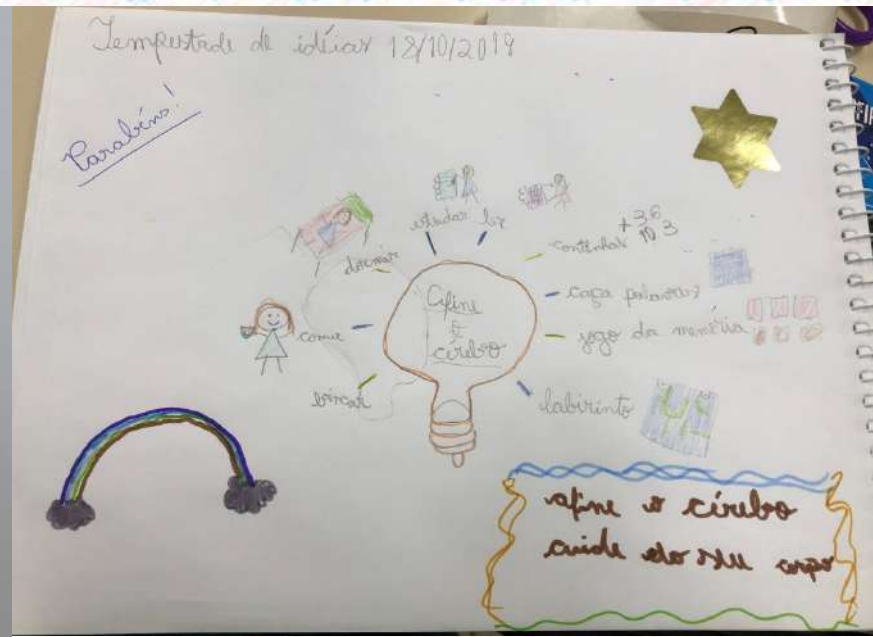 Tempestade de idéias 18/10/2019
Parabéns!
estudar ler
dormir
continhas + 36
10 3
Afine
o
cérebro
caça palavras
comer
jogo da memória
brincar
labirinto
afine o cérebro
cuide do seu corpo